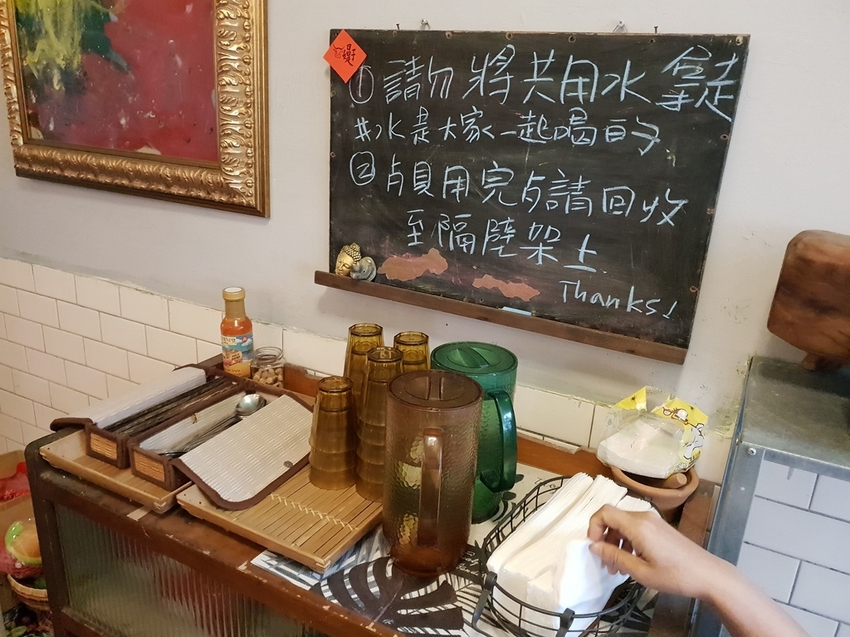 ①請勿將共用水拿走
共水是大家一起喝的
②貞貝用完后請回收
至隔壁架上
Thanks!